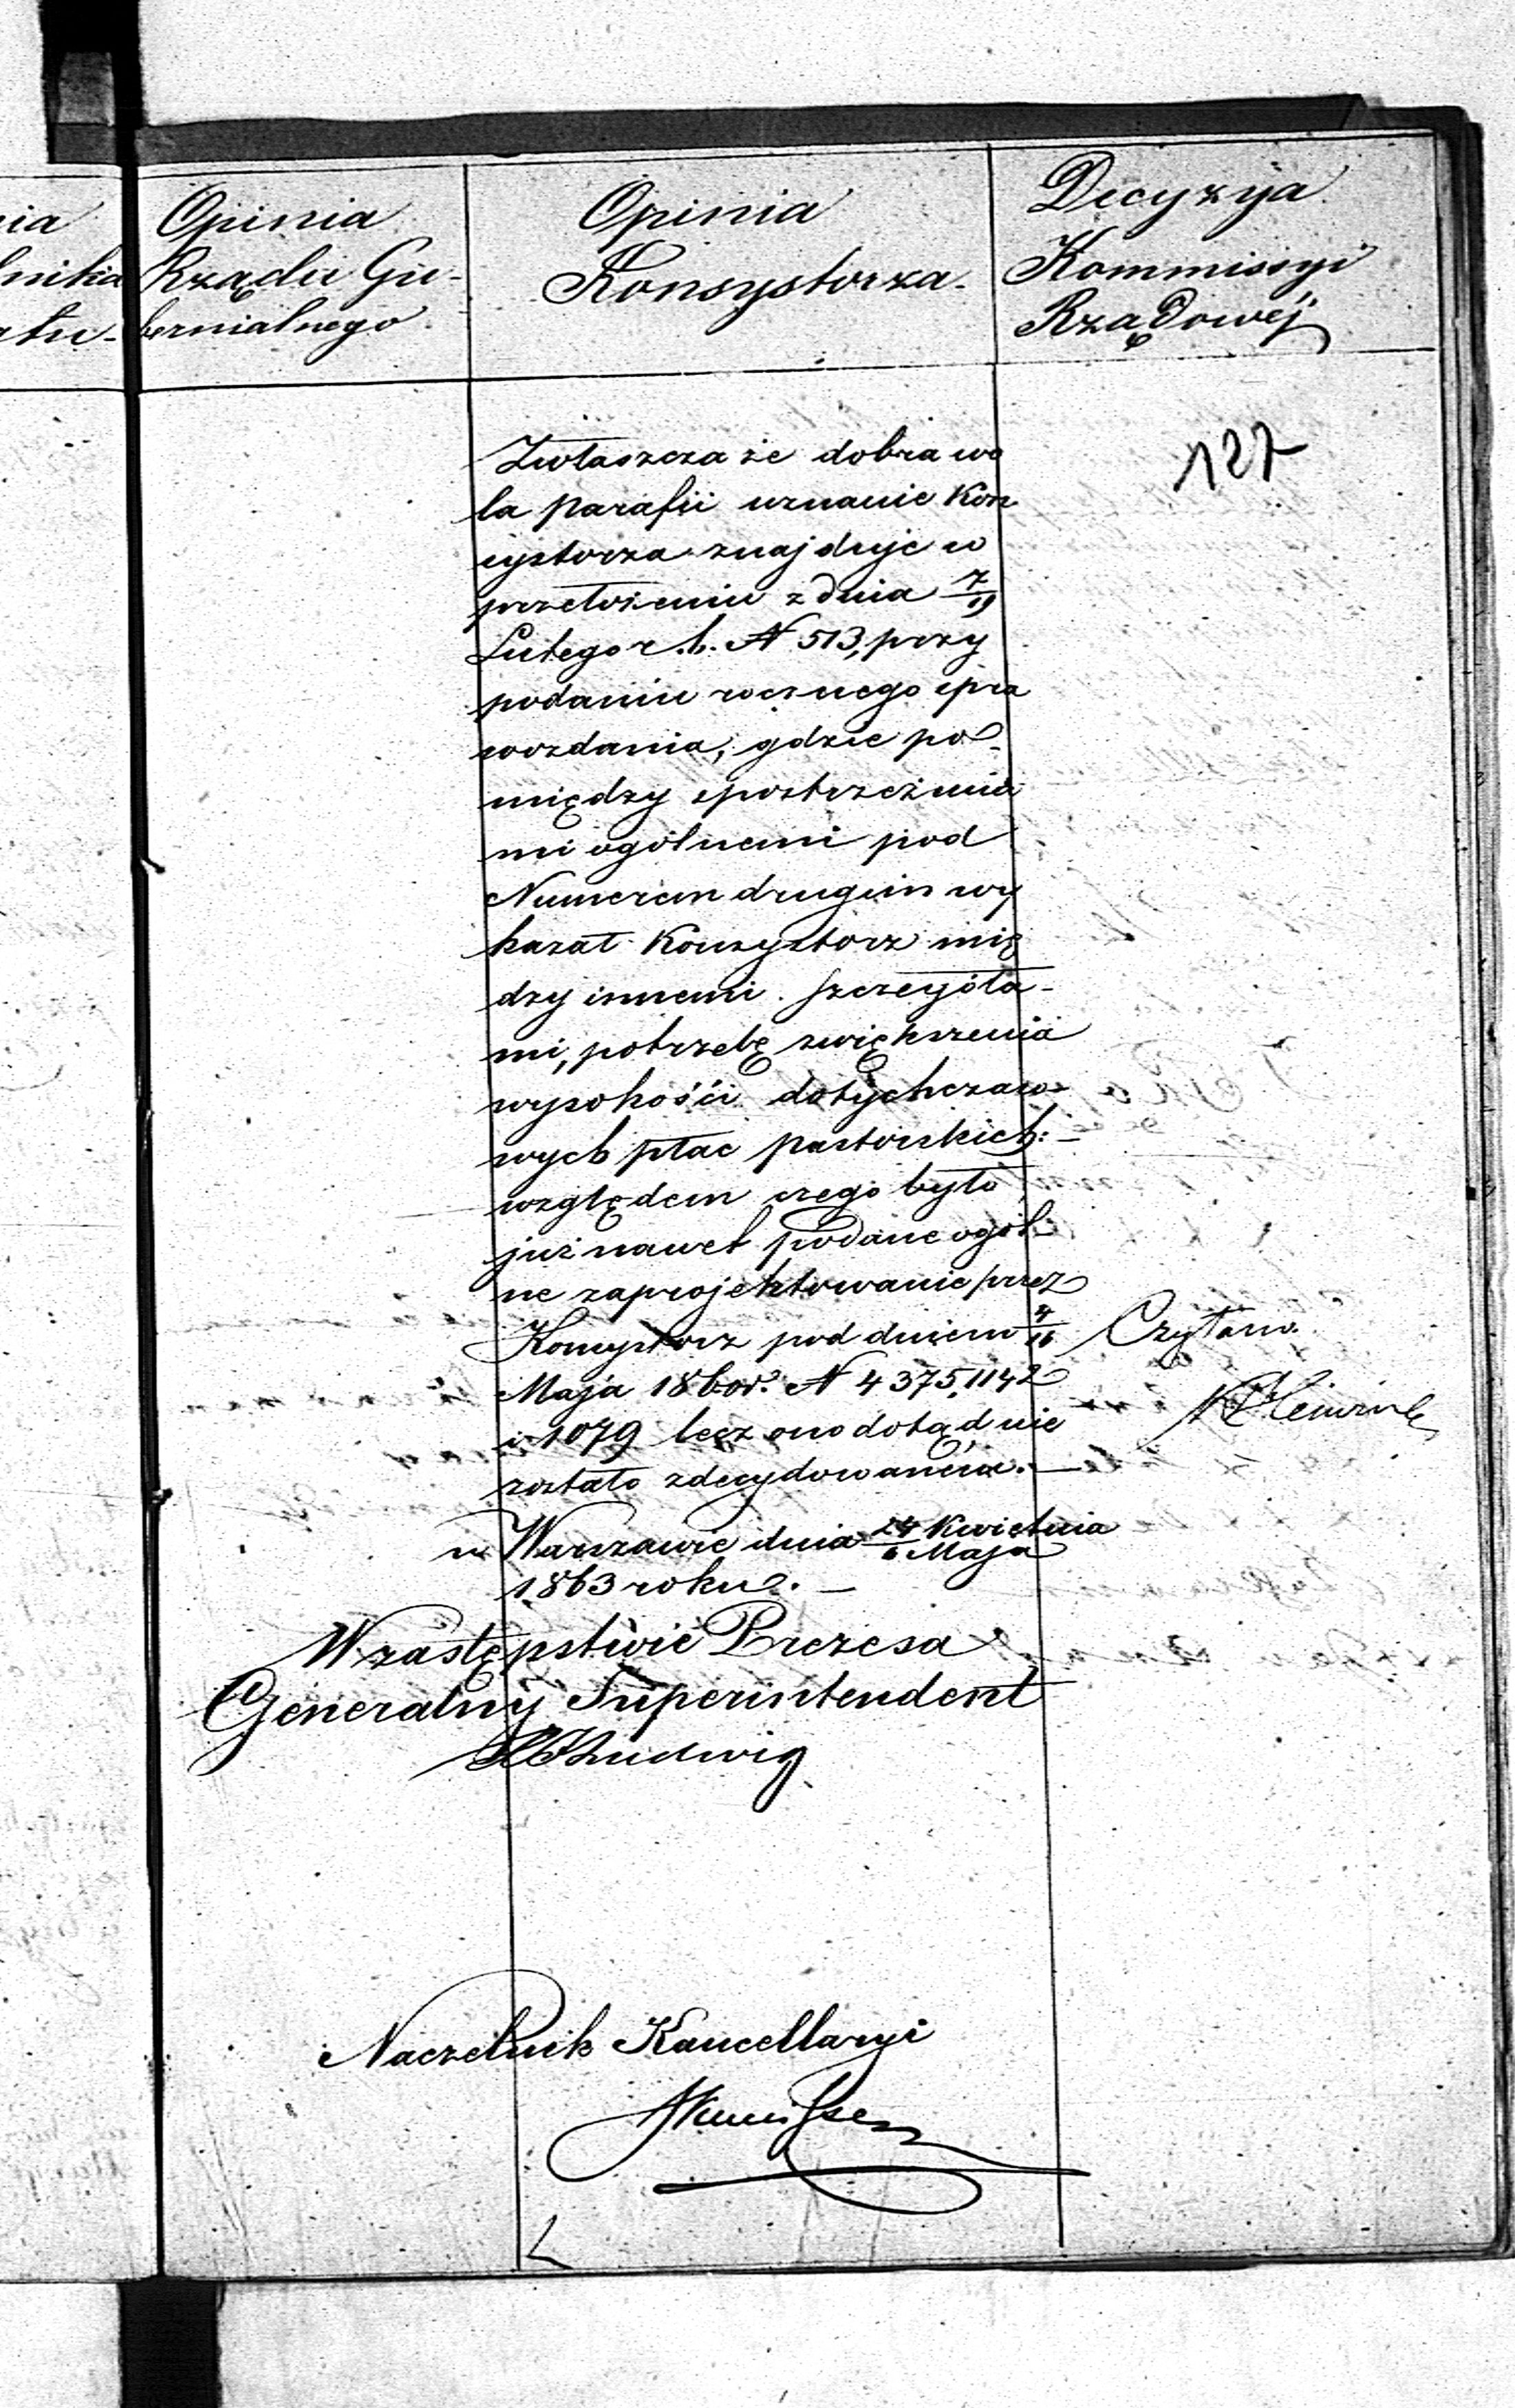 nia
lnika
atu-
Opinia
Rządu Gu-
bernialnego
Opinia
Konsystorza.
Decyzija
Kommissyi
Rządowéj
127
Zwłaszcza że dobra wo
la parafii uznanie Kon
systorza znajduje w
przełożeniu z dnia 7/19
Lutego r. b. N 513, przy
podaniu rocznego spra
wozdania, gdzie po-
między spostrzeżenia
mi ogólnemi pod
Numerem drugim wy
kazał Konsystorz mię
dzy innemi szczegóła-
mi, potrzebę zwiększenia
wysokości dotychczaso-
wych płac pastorskich: -
względem czego było
już nawet podane ogól
ne zaprojektowanie przez
Konsystorz pod dniem 4/16
Maja 1860 r. N 4375, 1142
i 1079 lecz ono dotąd nie
zostało zdecydowane. -
w Warszawie dnia 24 Kwietnia / 6 Maja
1863 roku. -
W zastępstwie Prezesa
Generalny Superintendent
Ludwig
Czytano.
Naczelnik Kancellaryi